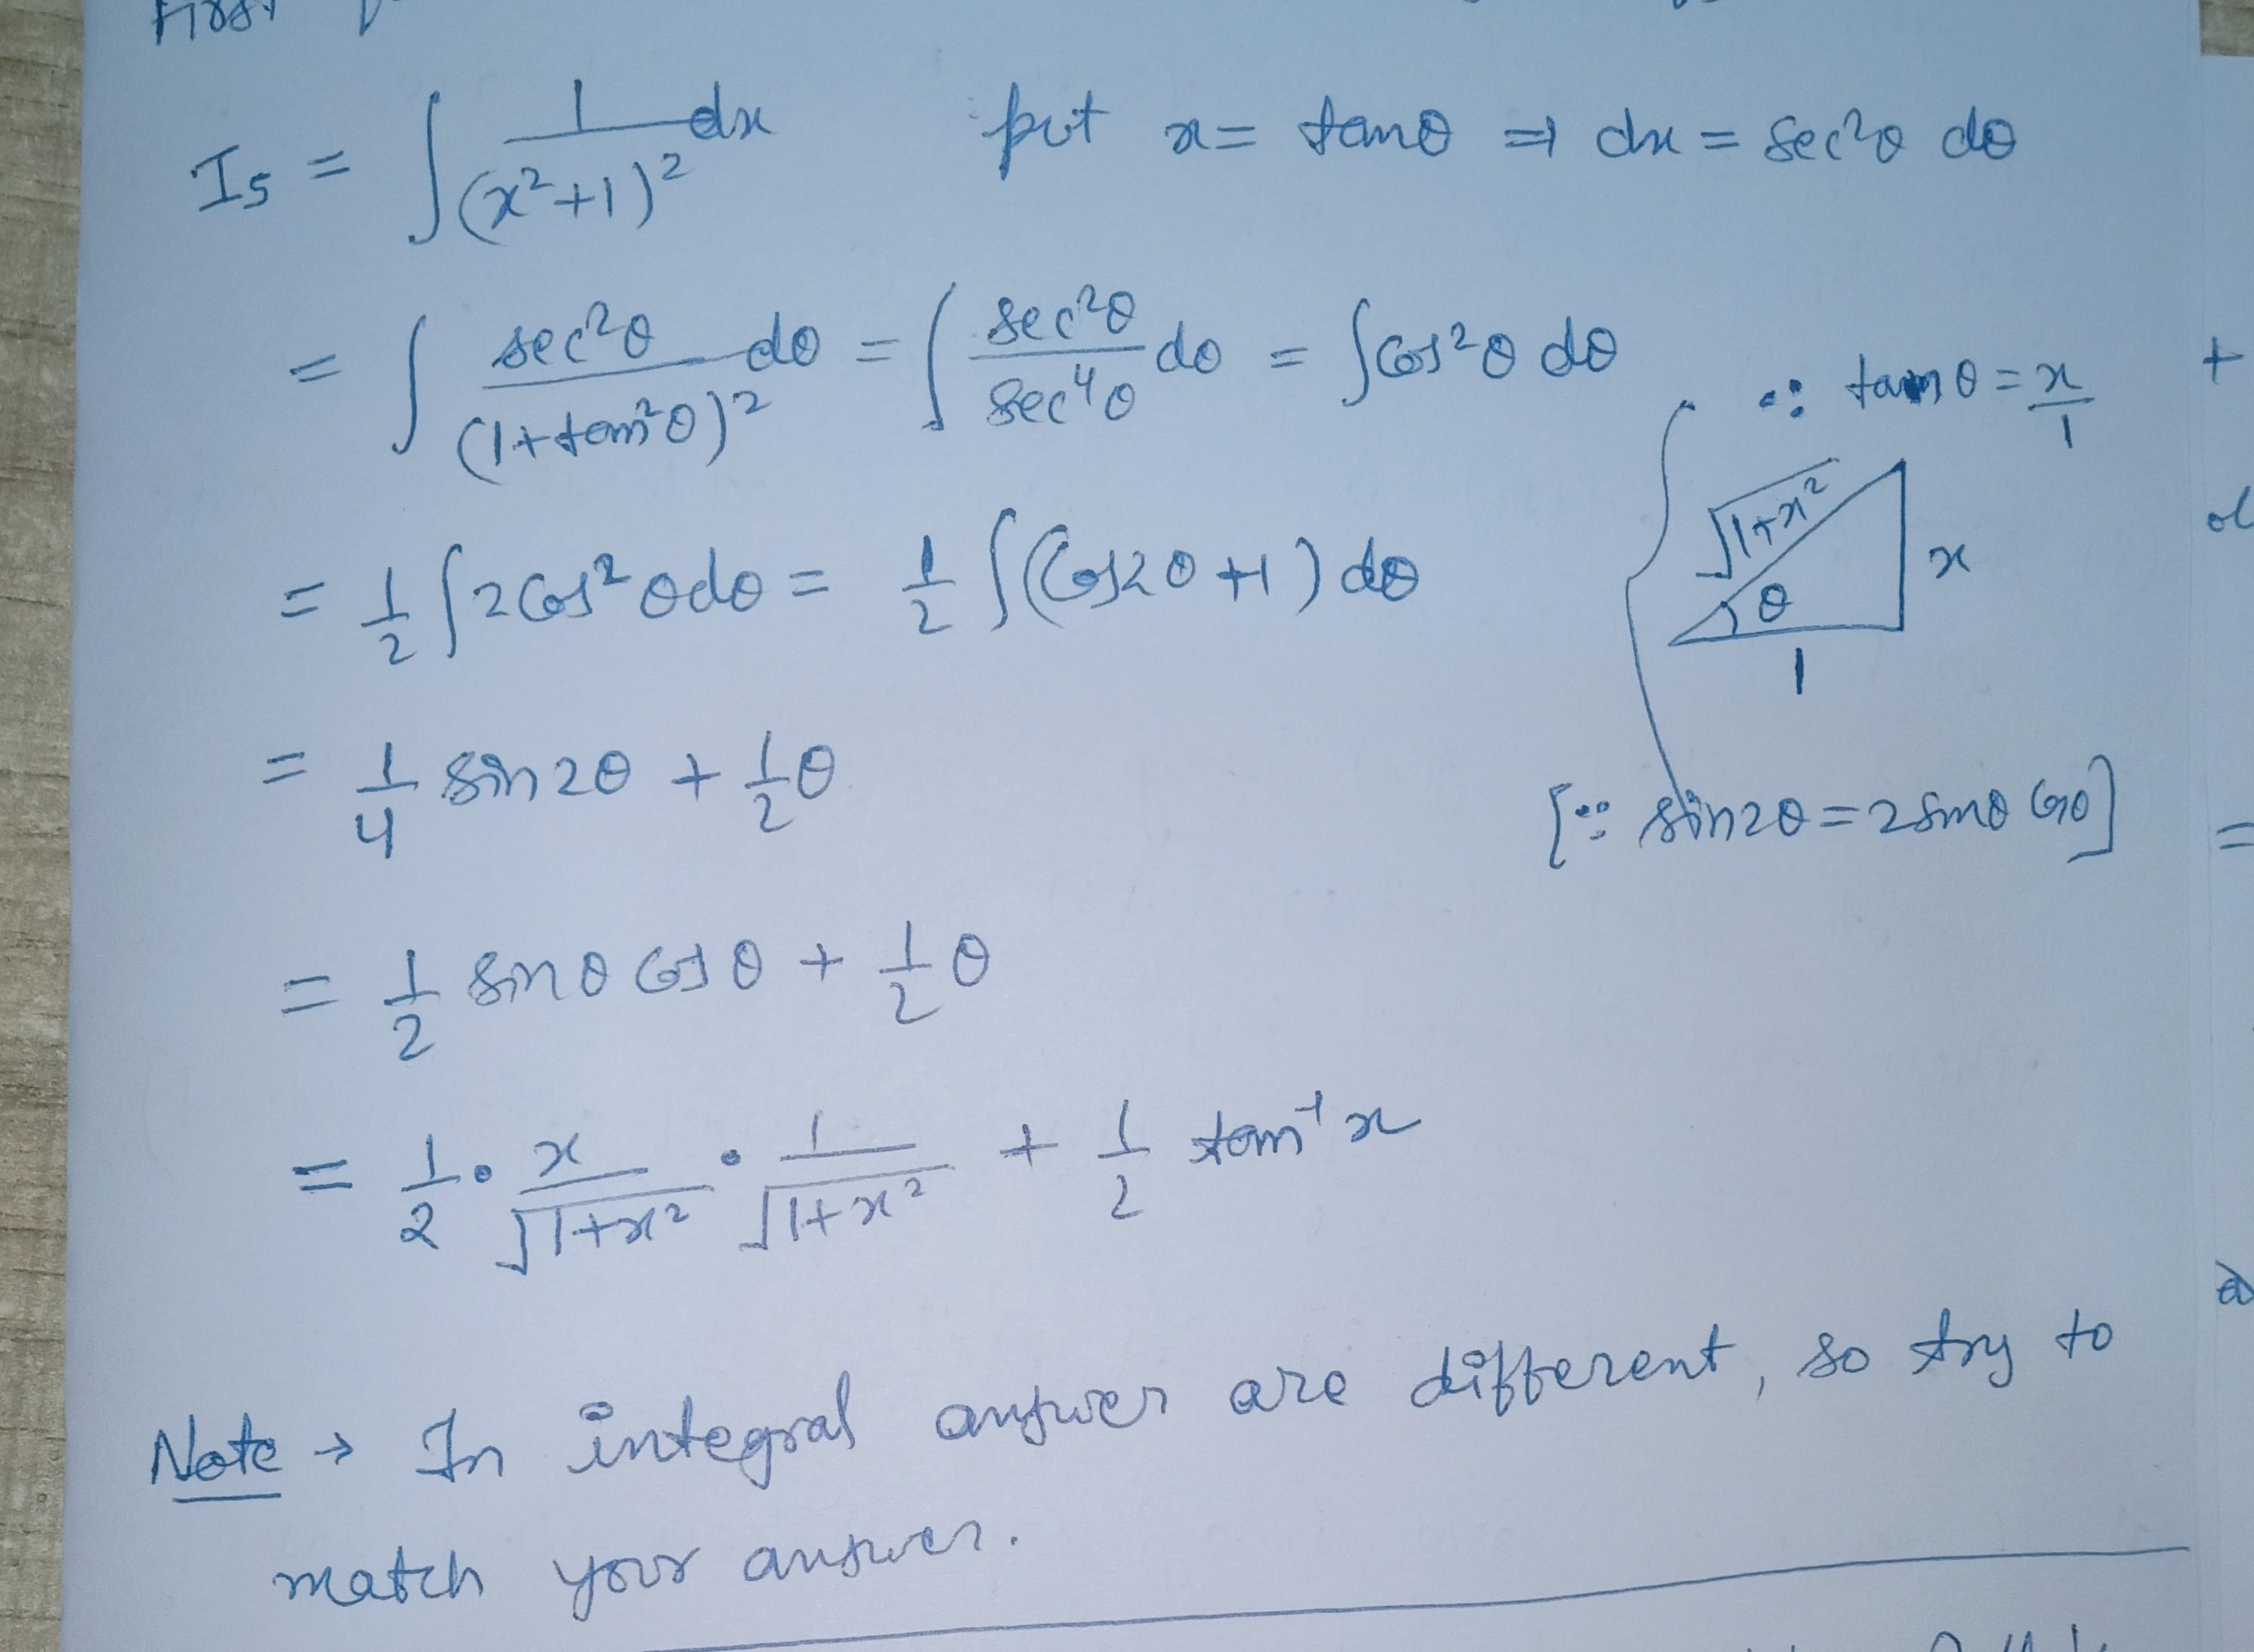 First
I₅ = ∫ 1/(x²+1)² dx put x = tanθ ⇒ dx = sec²θ dθ
= ∫ sec²θ/(1+tan²θ)² dθ = ∫ sec²θ/sec⁴θ dθ = ∫cos²θ dθ
∵ tanθ = x/1
√1+x²
θ
x
1
= 1/2 ∫2cos²θdθ = 1/2 ∫(Cos2θ+1) dθ
= 1/4 sin2θ + 1/2 θ
[∵ sin2θ = 2sinθ cosθ]
= 1/2 sinθ cosθ + 1/2 θ
= 1/2 · x/√1+x² · 1/√1+x² + 1/2 tan⁻¹x
Note → In integral answer are different, so try to
match your answer.